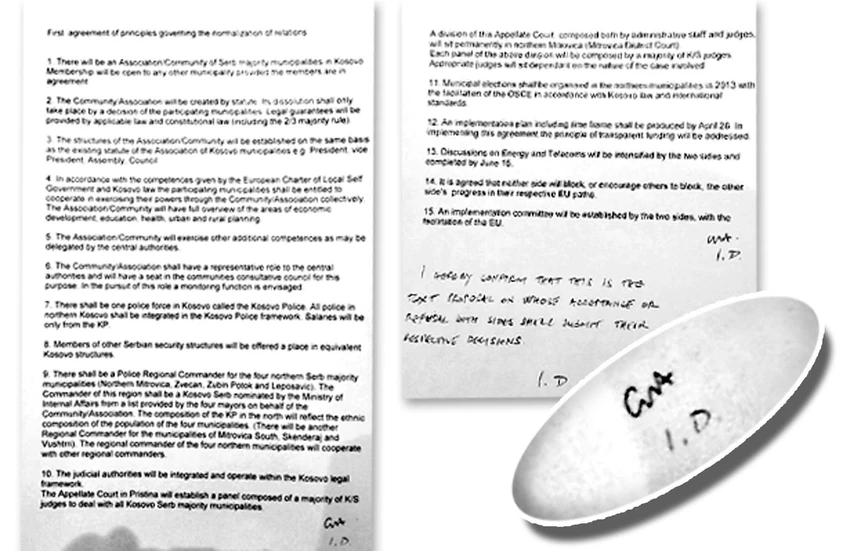 First agreement of principles governing the normalization of relations
1. There will be an Association/Community of Serb majority municipalities in Kosovo
Membership will be open to any other municipality provided the members are in
agreement
2. The Community/Association will be created by statute. Its dissolution shall only
take place by a decision of the participating municipalities. Legal guarantees will be
provided by applicable law and constitutional law (including the 2/3 majority rule)
3. The structures of the Association/Community will be established on the same basis
as the existing statute of the Association of Kosovo municipalities e.g. President, vice
President, Assembly, Council
4. In accordance with the competences given by the European Charter of Local Self
Government and Kosovo law the participating municipalities shall be entitled to
cooperate in exercising their powers through the Community/Association collectively.
The Association/Community will have full overview of the areas of economic
development, education, health, urban and rural planning.
5. The Association/Community will exercise other additional competences as may be
delegated by the central authorities.
6. The Community/Association shall have a representative role to the central
authorities and will have a seat in the communities consultative council for this
purpose. In the pursuit of this role a monitoring function is envisaged
7. There shall be one police force in Kosovo called the Kosovo Police. All police in
northern Kosovo shall be integrated in the Kosovo Police framework. Salaries will be
only from the KP.
8. Members of other Serbian security structures will be offered a place in equivalent
Kosovo structures.
9. There shall be a Police Regional Commander for the four northern Serb majority
municipalities (Northern Mitrovica, Zvecan, Zubin Potok and Leposavic). The
Commander of this region shall be a Kosovo Serb nominated by the Ministry of
Internal Affairs from a list provided by the four mayors on behalf of the
Community/Association. The composition of the KP in the north will reflect the ethnic
composition of the population of the four municipalities. (There will be another
Regional Commander for the municipalities of Mitrovica South, Skenderaj and
Vushtrri). The regional commander of the four northern municipalities will cooperate
with other regional commanders.
10. The judicial authorities will be integrated and operate within the Kosovo legal
framework.
The Appellate Court in Pristina will establish a panel composed of a majority of K/S
judges to deal with all Kosovo Serb majority municipalities.
I.D.
A division of this Appellate Court, composed both by administrative staff and judges,
will sit permanently in northern Mitrovica (Mitrovica District Court)
Each panel of the above division will be composed by a majority of K/S judges.
Appropriate judges will sit dependant on the nature of the case involved
11. Municipal elections shall be organised in the northern municipalities in 2013 with
the facilitation of the OSCE in accordance with Kosovo law and international
standards.
12. An implementation plan including time frame shall be produced by April 26. In
implementing this agreement the principle of transparent funding will be addressed.
13. Discussions on Energy and Telecoms will be intensified by the two sides and
completed by June 15.
14. It is agreed that neither side will block, or encourage others to block, the other
side's progress in their respective EU paths.
15. An implementation committee will be established by the two sides, with the
facilitation of the EU.
I.D.
I HEREBY CONFIRM THAT THIS IS THE
TEXT PROPOSAL ON WHOSE ACCEPTANCE OR
REFUSAL BOTH SIDES SHALL SUBMIT THEIR
RESPECTIVE DECISIONS
I.D
I.D.